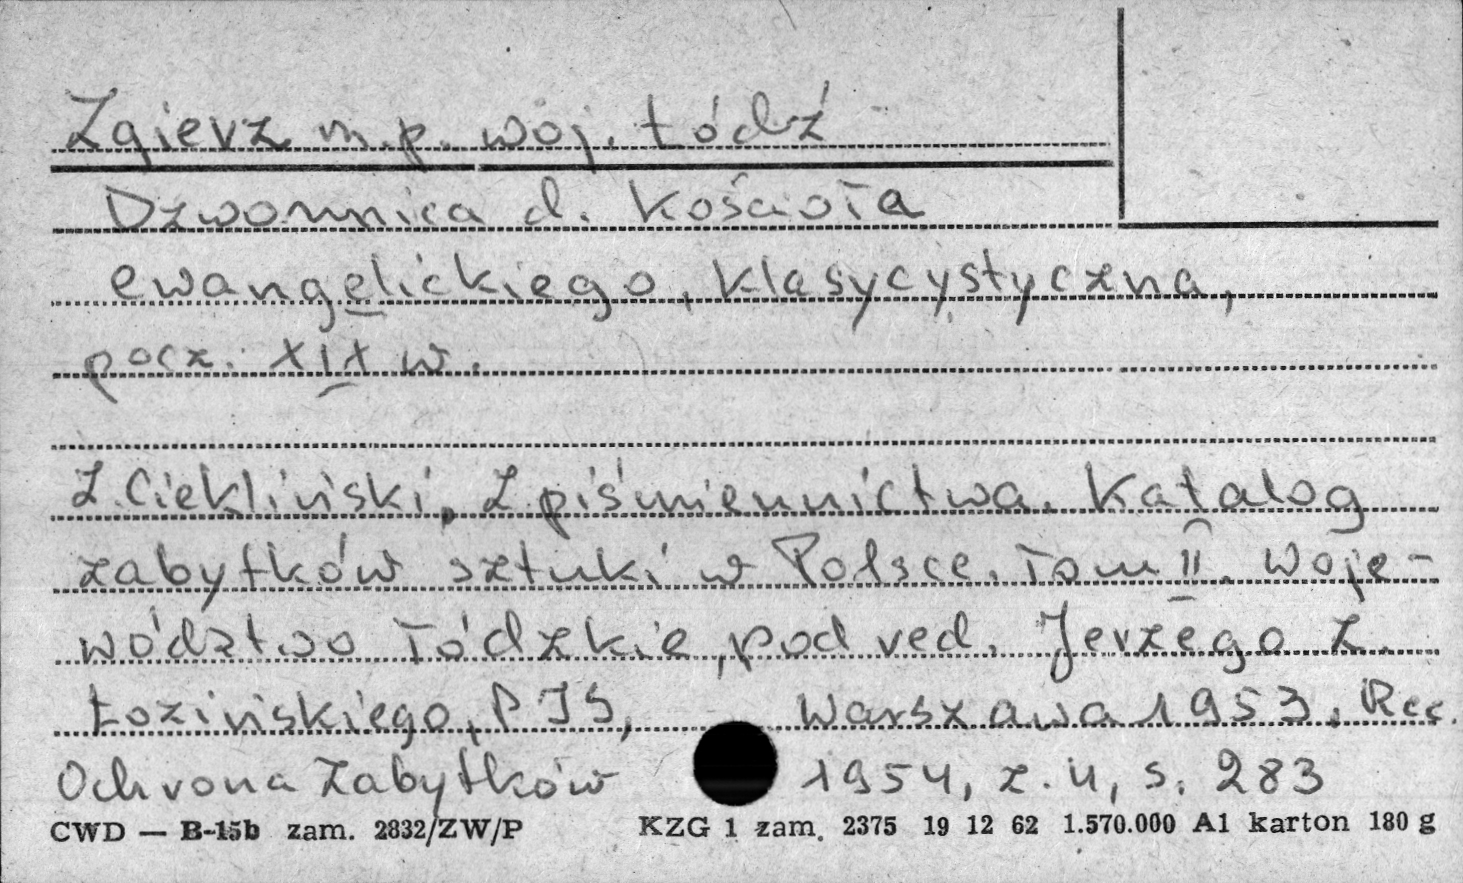 Zgierz m.p. woj. Łódź
Dzwonnica d. Kościoła
ewangelickiego, klasycystyczna,
pocz. XIX w.
Z. Ciekliński, Z piśmiennictwa. Katalog
zabytków sztuki w Polsce. Tom II. Woje-
wództwo Łódzkie, pod red. Jerzego Z.
Łozińskiego, PIS, Warszawa 1953, Rec.
Ochrona Zabytków 1954, z. 4, s. 283
CWD — B-15b zam. 2832/ZW/P KZG 1 zam. 2375 19 12 62 1.570.000 A1 karton 180 g